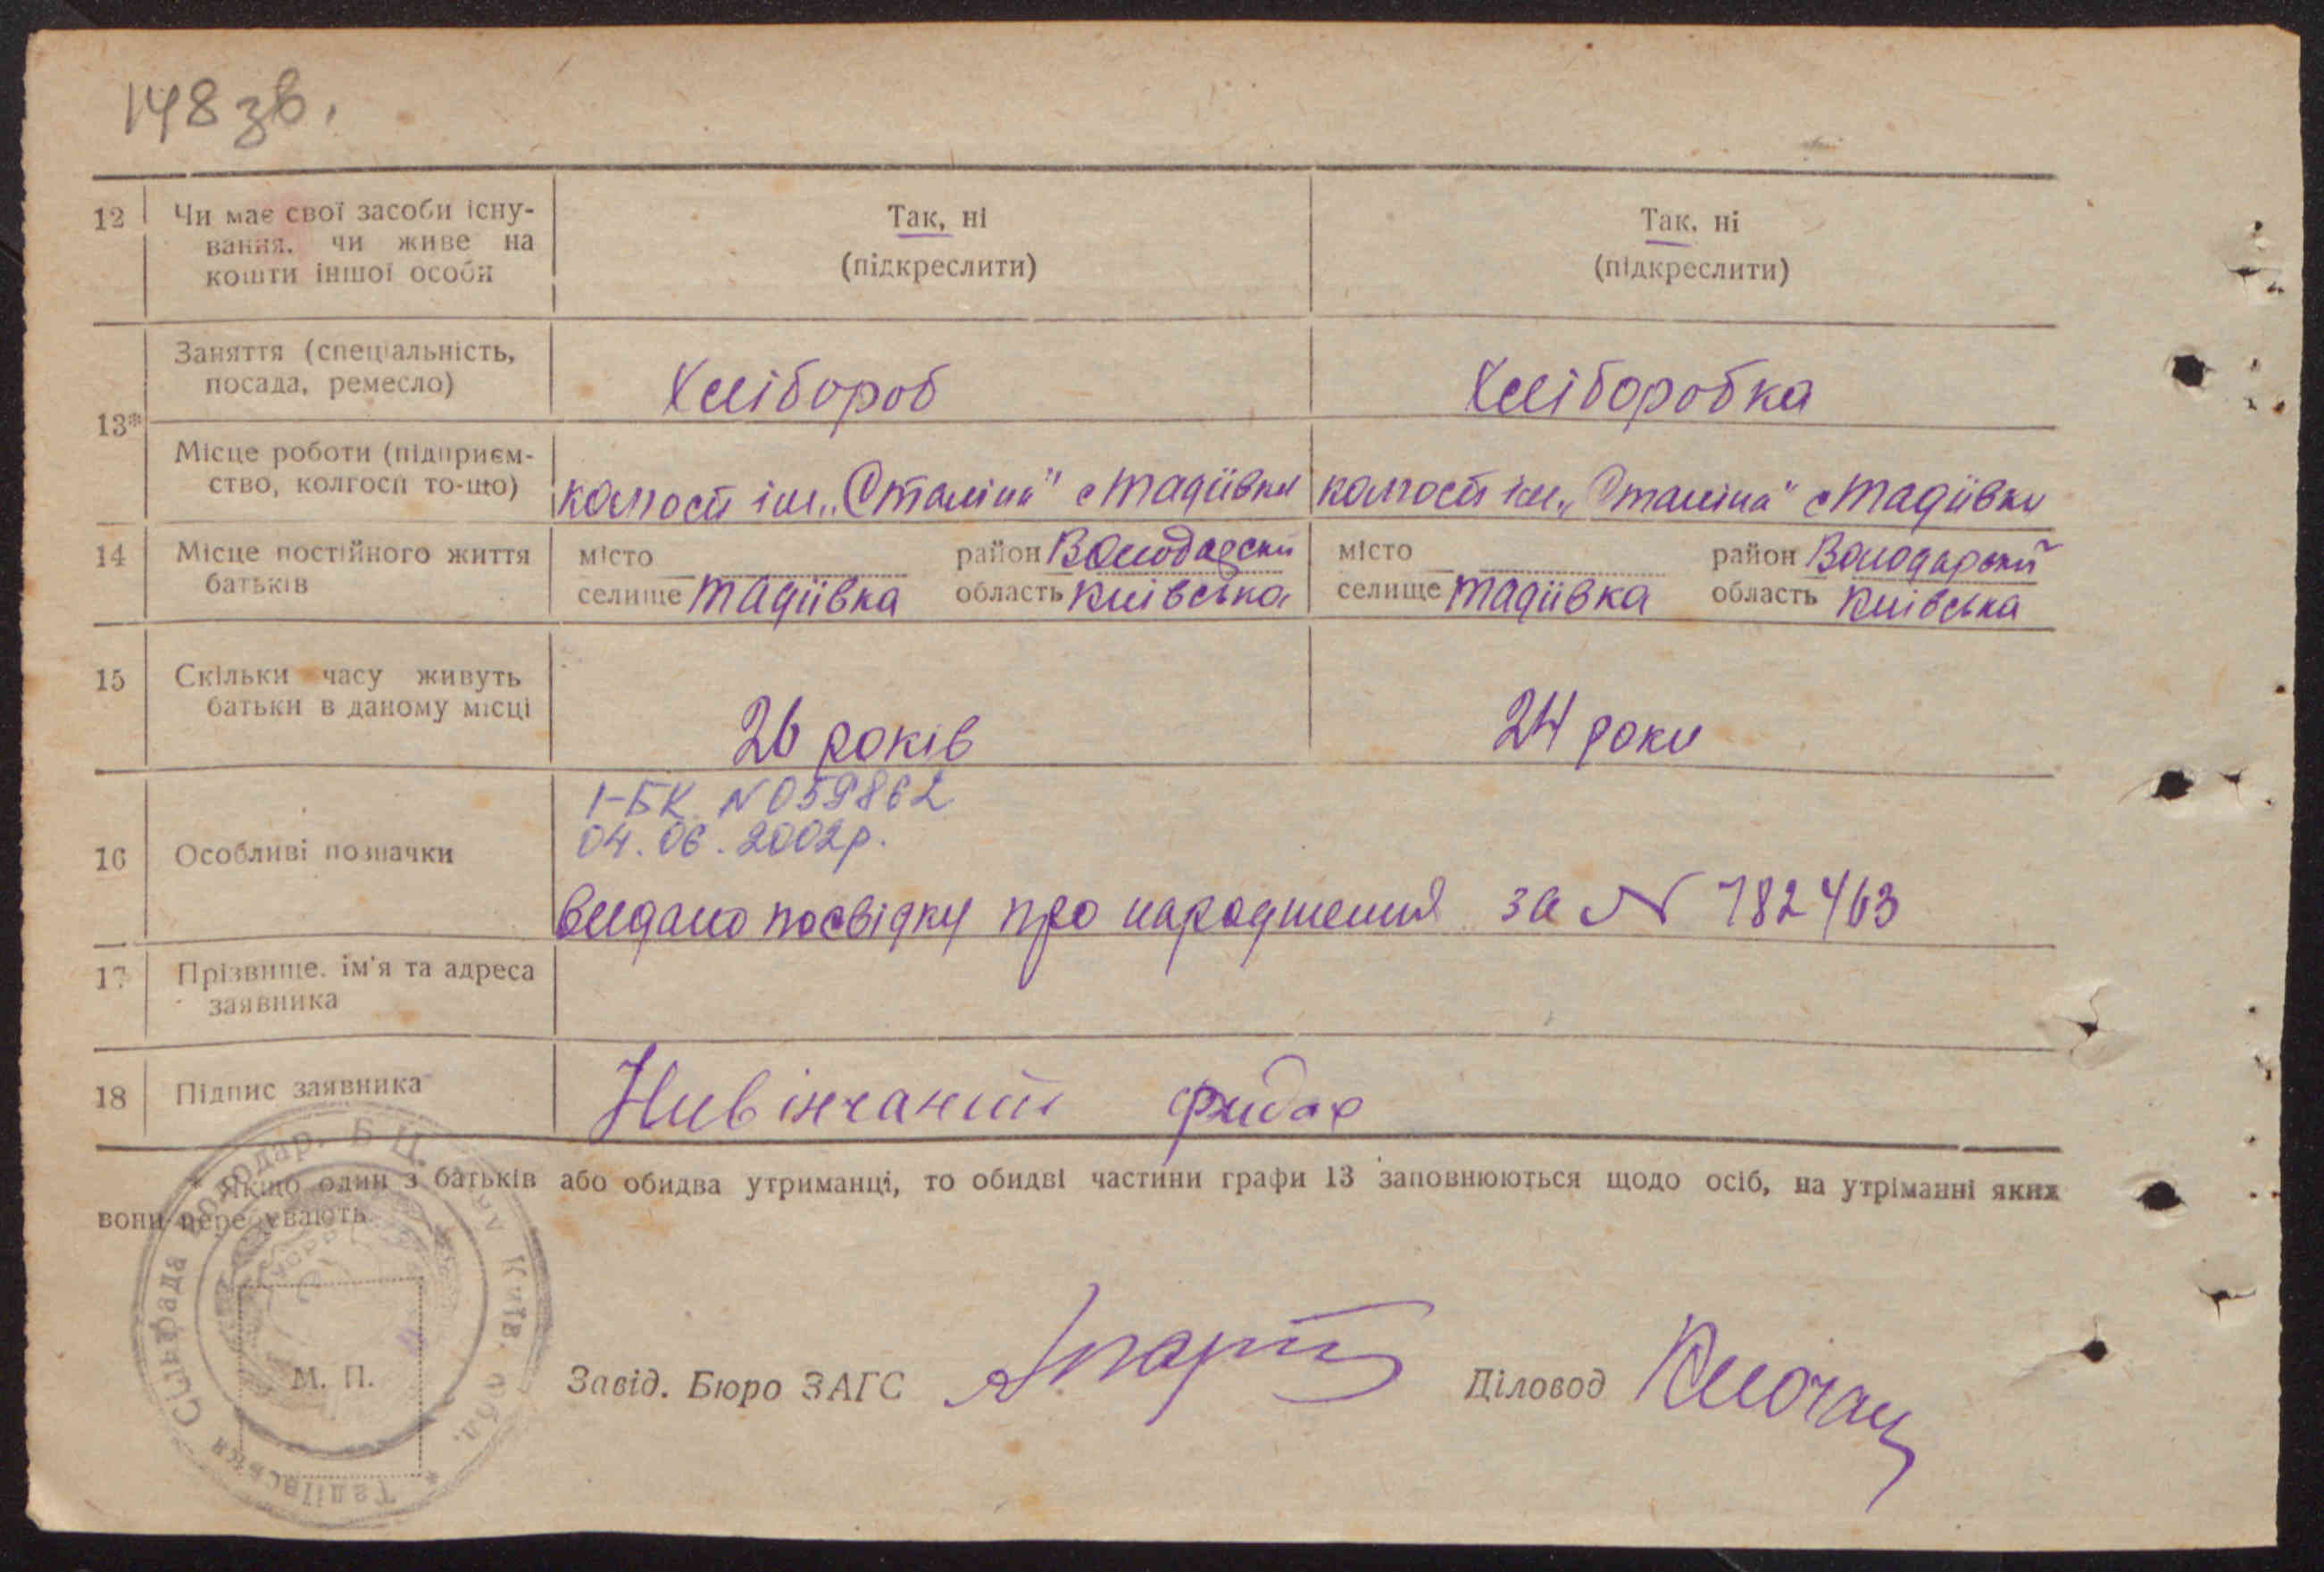 148 зв.
12 Чи має свої засоби існу-
вання, чи живе на
кошти іншої особи
Так, ні
(підкреслити)
Так, ні
(підкреслити)
13*
Заняття (спеціальність,
посада, ремесло)
Хлібороб
Хліборобка
Місце роботи (підприєм-
ство, колгосп то-що)
колгосп ім. „Сталіна" с Тадіївки
колгосп ім. „Сталіна" с Тадіївки
14 Місце постійного життя
батьків
місто район Володарськи
селище Тадіївка область Київська
місто район Володарский
селище Тадіївка область Київська
15 Скільки часу живуть
батьки в даному місці
26 років
24 роки
16 Особливі позначки
1-БК N 059862
04.06.2002р.
видано посвідку про народження за N 782463
17 Прізвище, ім'я та адреса
заявника
18 Підпис заявника
* Якщо один з батьків або обидва утриманці, то обидві частини графи 13 заповнюються щодо осіб, на утріманні яких
вони перебувають.
Тадіївська Сільрада Володар. Б Ц. Київ. обл.
М. П.
Завід. Бюро ЗАГС
Діловод